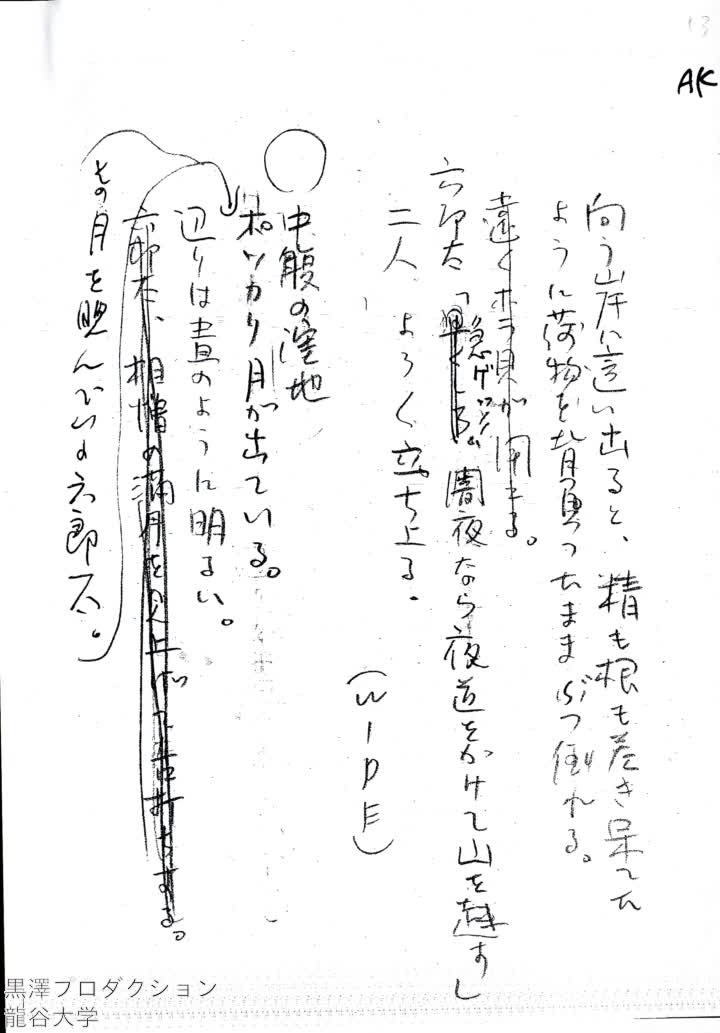 13
AK
向う岸に這い出ると、精も根も尽き果てた
ように荷物を背負ったままぶっ倒れる。
遠くホラ貝が聞える。
六郎太「急げッ！！闇夜なら夜道をかけて山を越すし
二人、よろ〱立ち上る。
(WIPE)
中腹の窪地
ポッカリ月が出ている。
辺りは昼のように明るい。
六郎太、相憎の満月を見上げて舌打ちする。
その月を睨んでいる六郎太。
黒澤プロダクション
龍谷大学